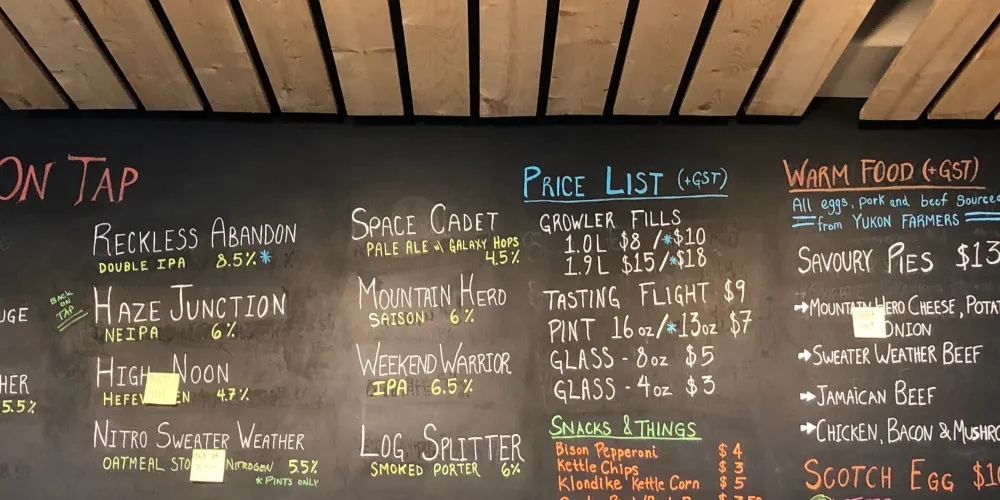 ON TAP
UGE
HER
5.5%
RECKLESS ABANDON
DOUBLE IPA 8.5%*
BACK ON TAP
HAZE JUNCTION
NEIPA 6%
HIGH NOON
HEFEW EN 4.7%
NITRO SWEATER WEATHER
OATMEAL STO NITROGEN 5.5%
*PINTS ONLY
SPACE CADET
PALE ALE w GALAXY HOPS
4.5%
MOUNTAIN HERO
SAISON 6%
WEEKEND WARRIOR
IPA 6.5%
LOG SPLITTER
SMOKED PORTER 6%
PRICE LIST (+GST)
GROWLER FILLS
1.0L $8 /*$10
1.9L $15/*$18
TASTING FLIGHT $9
PINT 16oz/*13oz $7
GLASS - 8oz $5
GLASS - 4oz $3
SNACKS & THINGS
Bison Pepperoni $4
Kettle Chips $3
Klondike Kettle Corn $5
WARM FOOD (+GST)
All eggs, pork and beef Source
from YUKON FARMERS
SAVOURY PIES $13
→MOUNTAIN HERO CHEESE, POTA
ONION
→SWEATER WEATHER BEEF
→JAMAICAN BEEF
→CHICKEN, BACON & MUSHRO
SCOTCH EGG $1